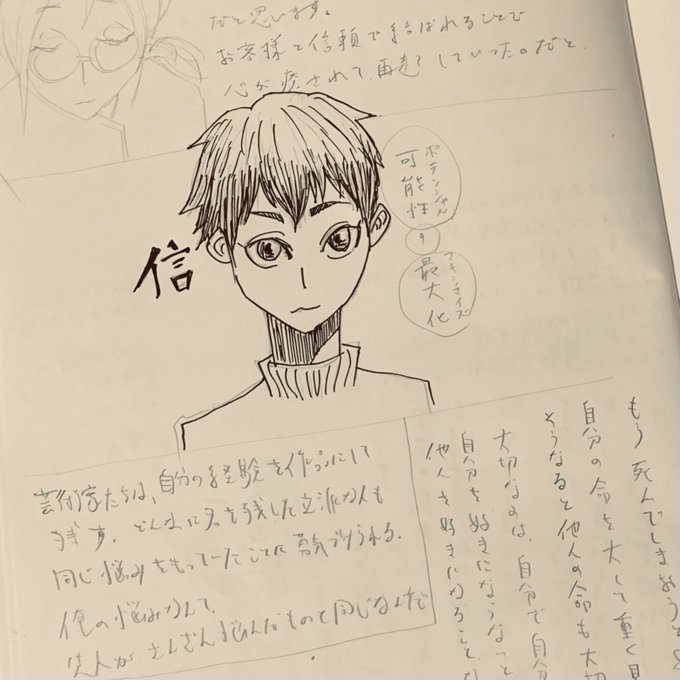 だと思います。
お客様と信頼で結ばれることで
心が癒されて、再起していったのだと、
信
可能性
ポテンシャル
の
最大化
マキシマイズ
芸術家たちは、自分の経験を作品にして
残す。どんなに名を残した立派な人も
同じ悩みをもっていたことに勇気づけられる。
俺の悩みなんて、
先人がさんざん悩んだものと同じなんだ
もう死んでしまおうと
自分の命を大して重く見
そうなると他人の命も大切
大切なのは、自分で自分
自分を好きにならないと
他人を好きになること